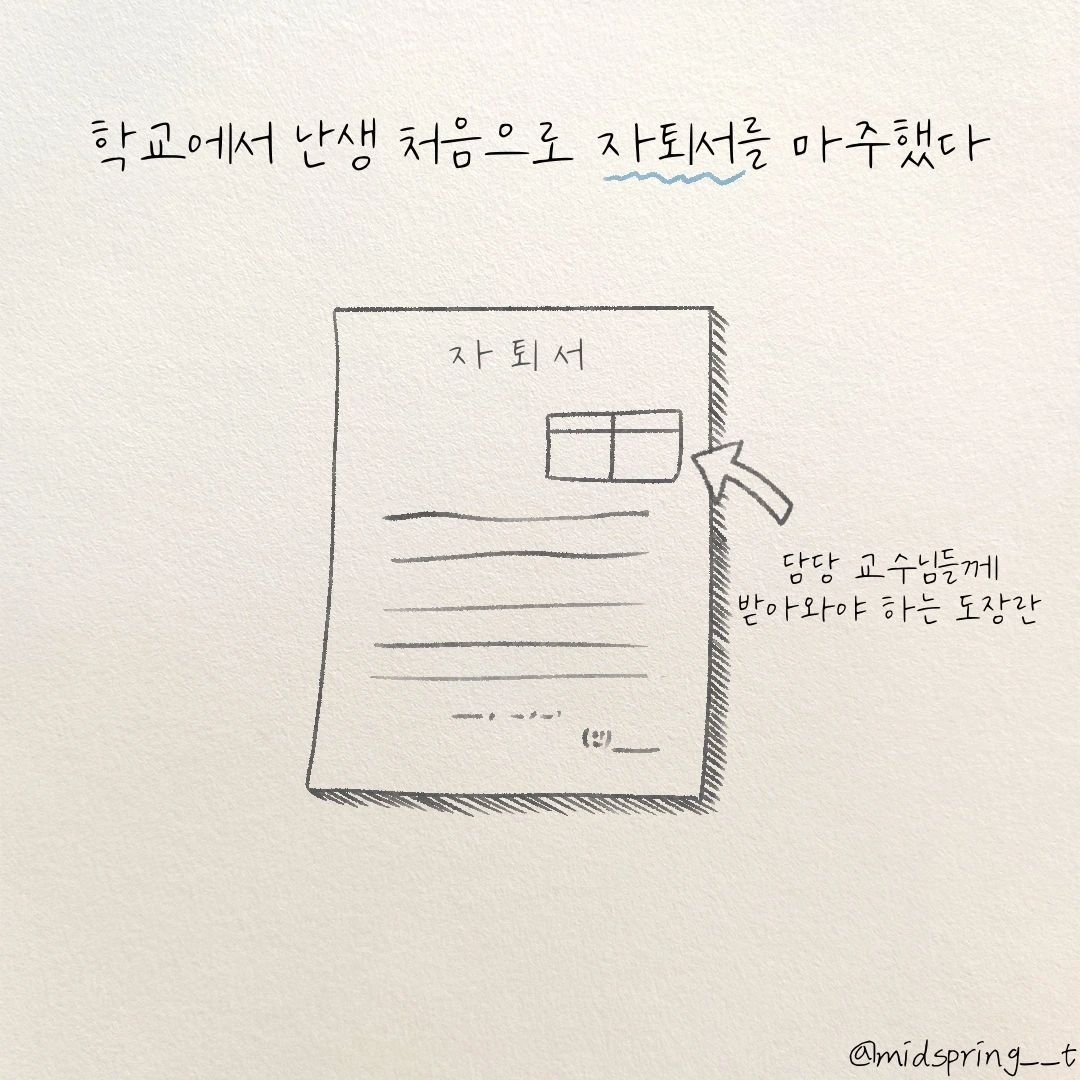 학교에서 난생 처음으로 자퇴서를 마주했다
자퇴서
담당 교수님들께
받아와야 하는 도장란
(인)
@midspring__t